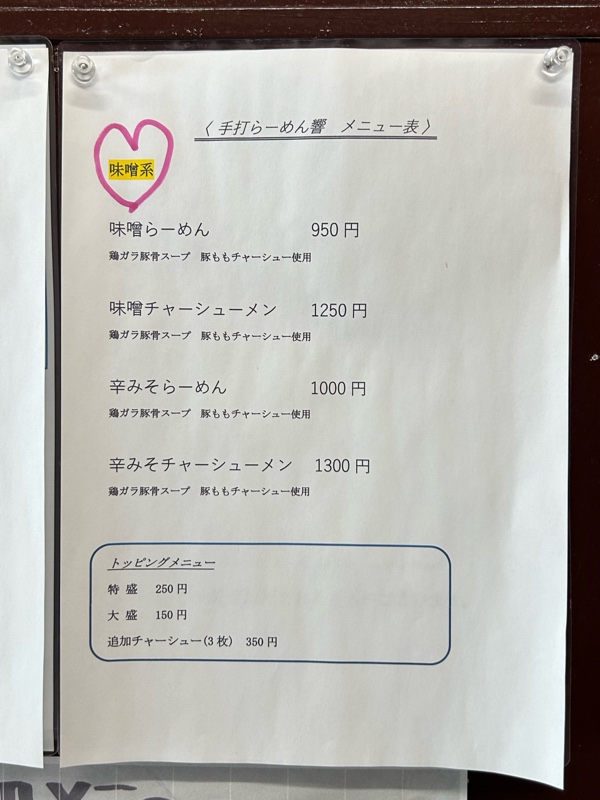 〈 手打らーめん響　メニュー表 〉
味噌系
味噌らーめん　950 円
鶏ガラ豚骨スープ　豚ももチャーシュー使用
味噌チャーシューメン　1250 円
鶏ガラ豚骨スープ　豚ももチャーシュー使用
辛みそらーめん　1000 円
鶏ガラ豚骨スープ　豚ももチャーシュー使用
辛みそチャーシューメン　1300 円
鶏ガラ豚骨スープ　豚ももチャーシュー使用
トッピングメニュー
特 盛　250 円
大 盛　150 円
追加チャーシュー(3 枚)　350 円